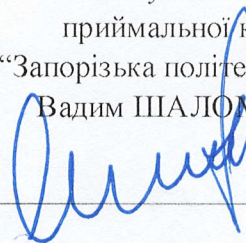 приймальної к
“Запорізька політе
Вадим ШАЛОМ